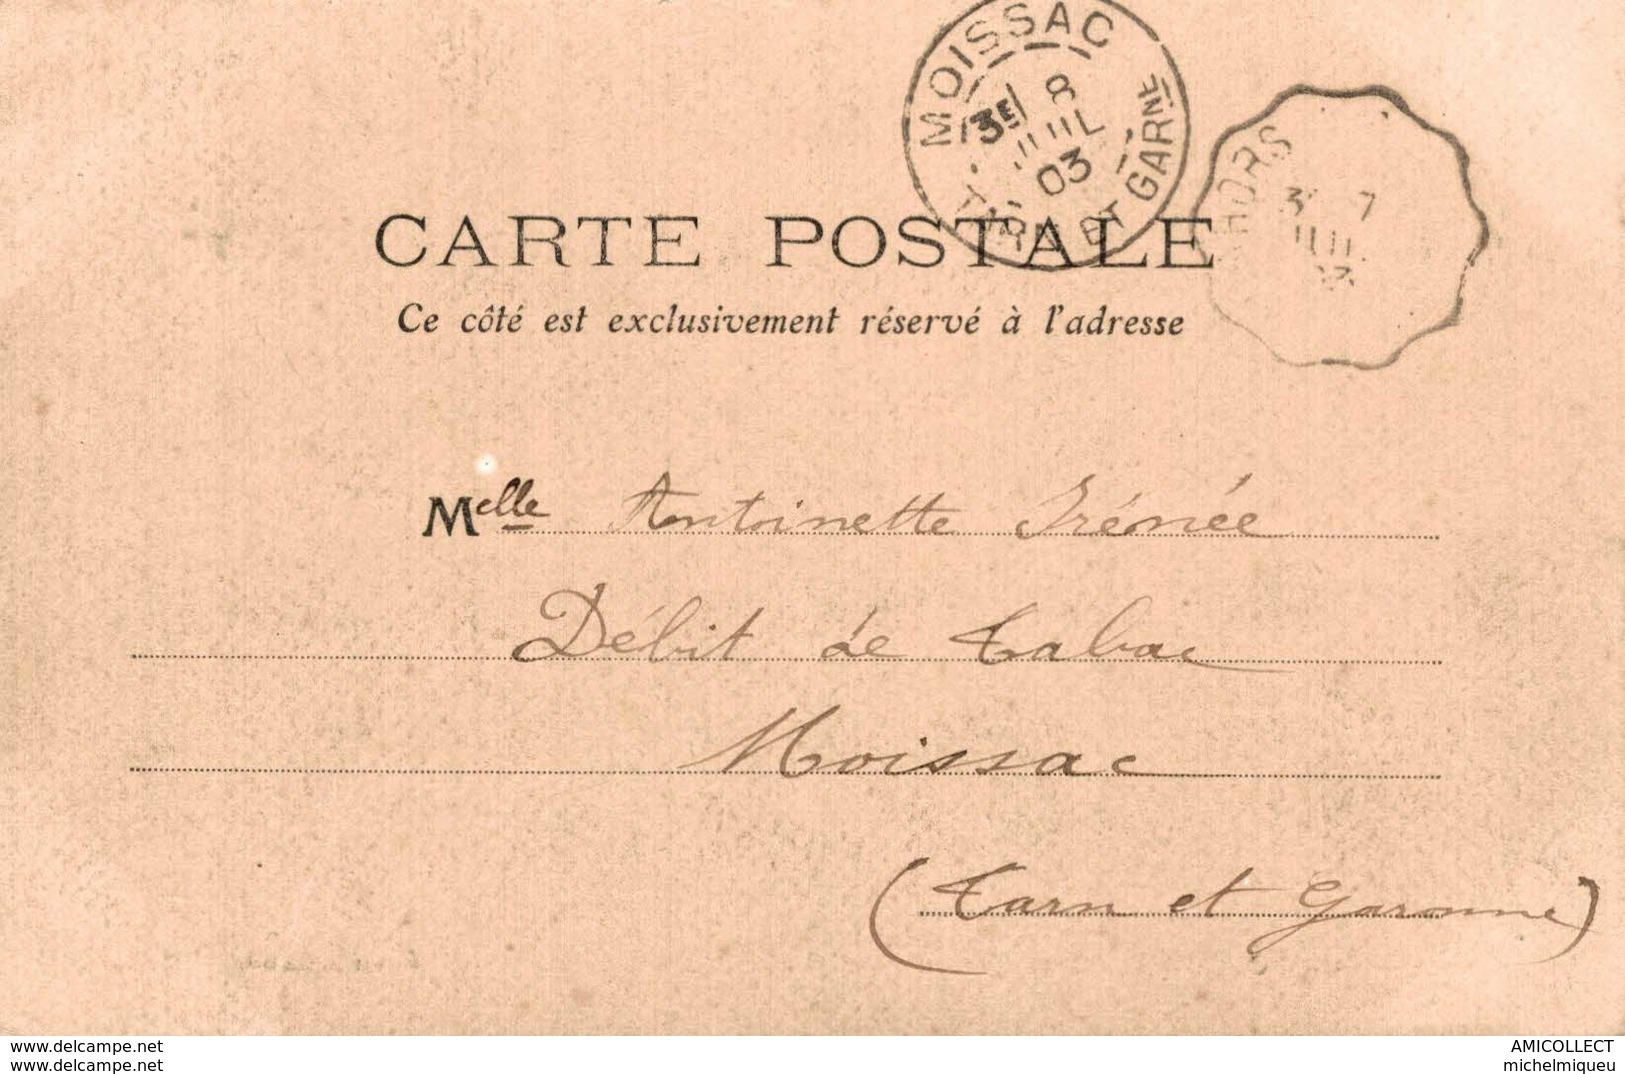 MOISSAC
3E
8
JUIL
03
TARN ET GARNE
HORS
3E 7
03
CARTE POSTALE
Ce côté est exclusivement réservé à l'adresse
Melle Antoinette Irénée
Débit de Tabac
Moissac
(Tarn et Garonne)
www.delcampe.net
www.delcampe.net
AMICOLLECT
michelmiqueu